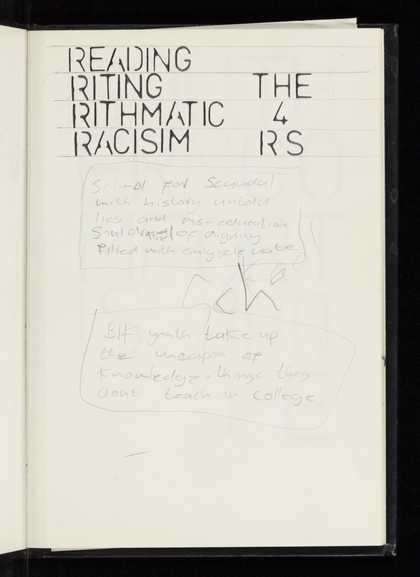 READING
RITING THE
RITHMATIC 4
RACISIM RS
for Scandal
with history untold
lies and mis-education
of
filled with
Scho
Blk youth take up
the weapon of
knowledge - things they
dont teach in college